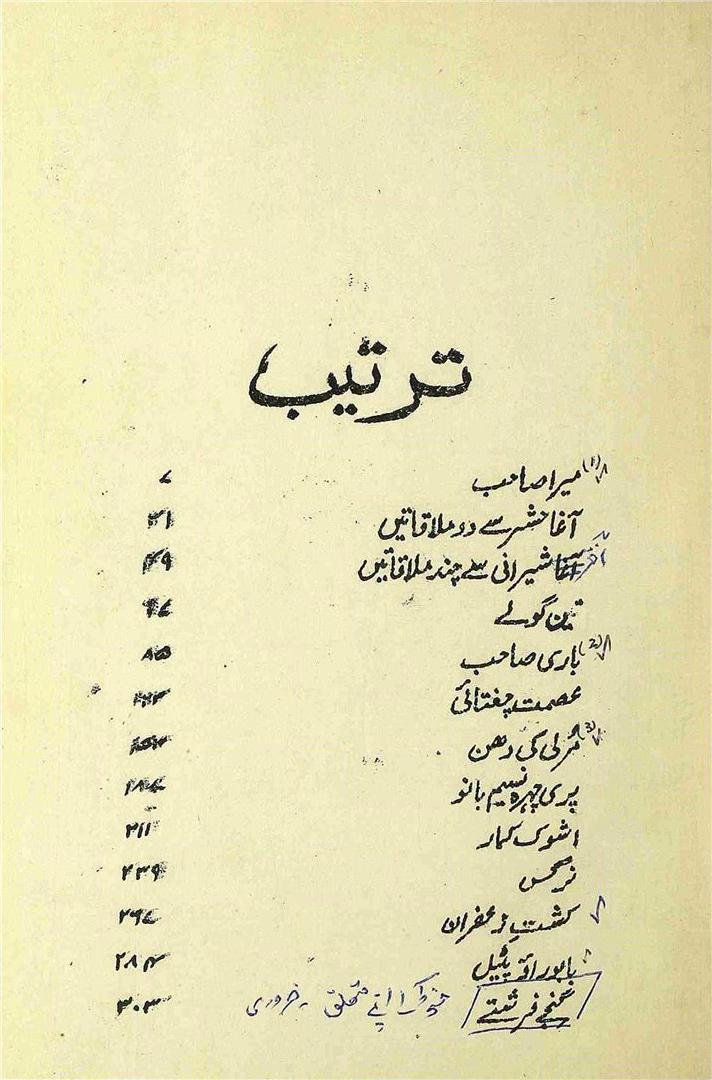 ترتیب
(۱) میرا صاحب ۷
آغا حشر سے دو ملاقاتیں ۳۱
اختر شیرانی سے چند ملاقاتیں ۴۹
تین گولے ۶۷
(2) باری صاحب ۸۵
عصمت چغتائی
(3) مُرلی کی دھن
پری چہرہ نسیم بانو
اشوک کمار ۲۱۱
نرگس ۲۳۹
کشتِ زعفران ۲۶۷
بابو راؤ پٹیل ۲۸۴
گنجے فرشتے ۳۰۳
منٹو کی اپنے متعلق - ضروری